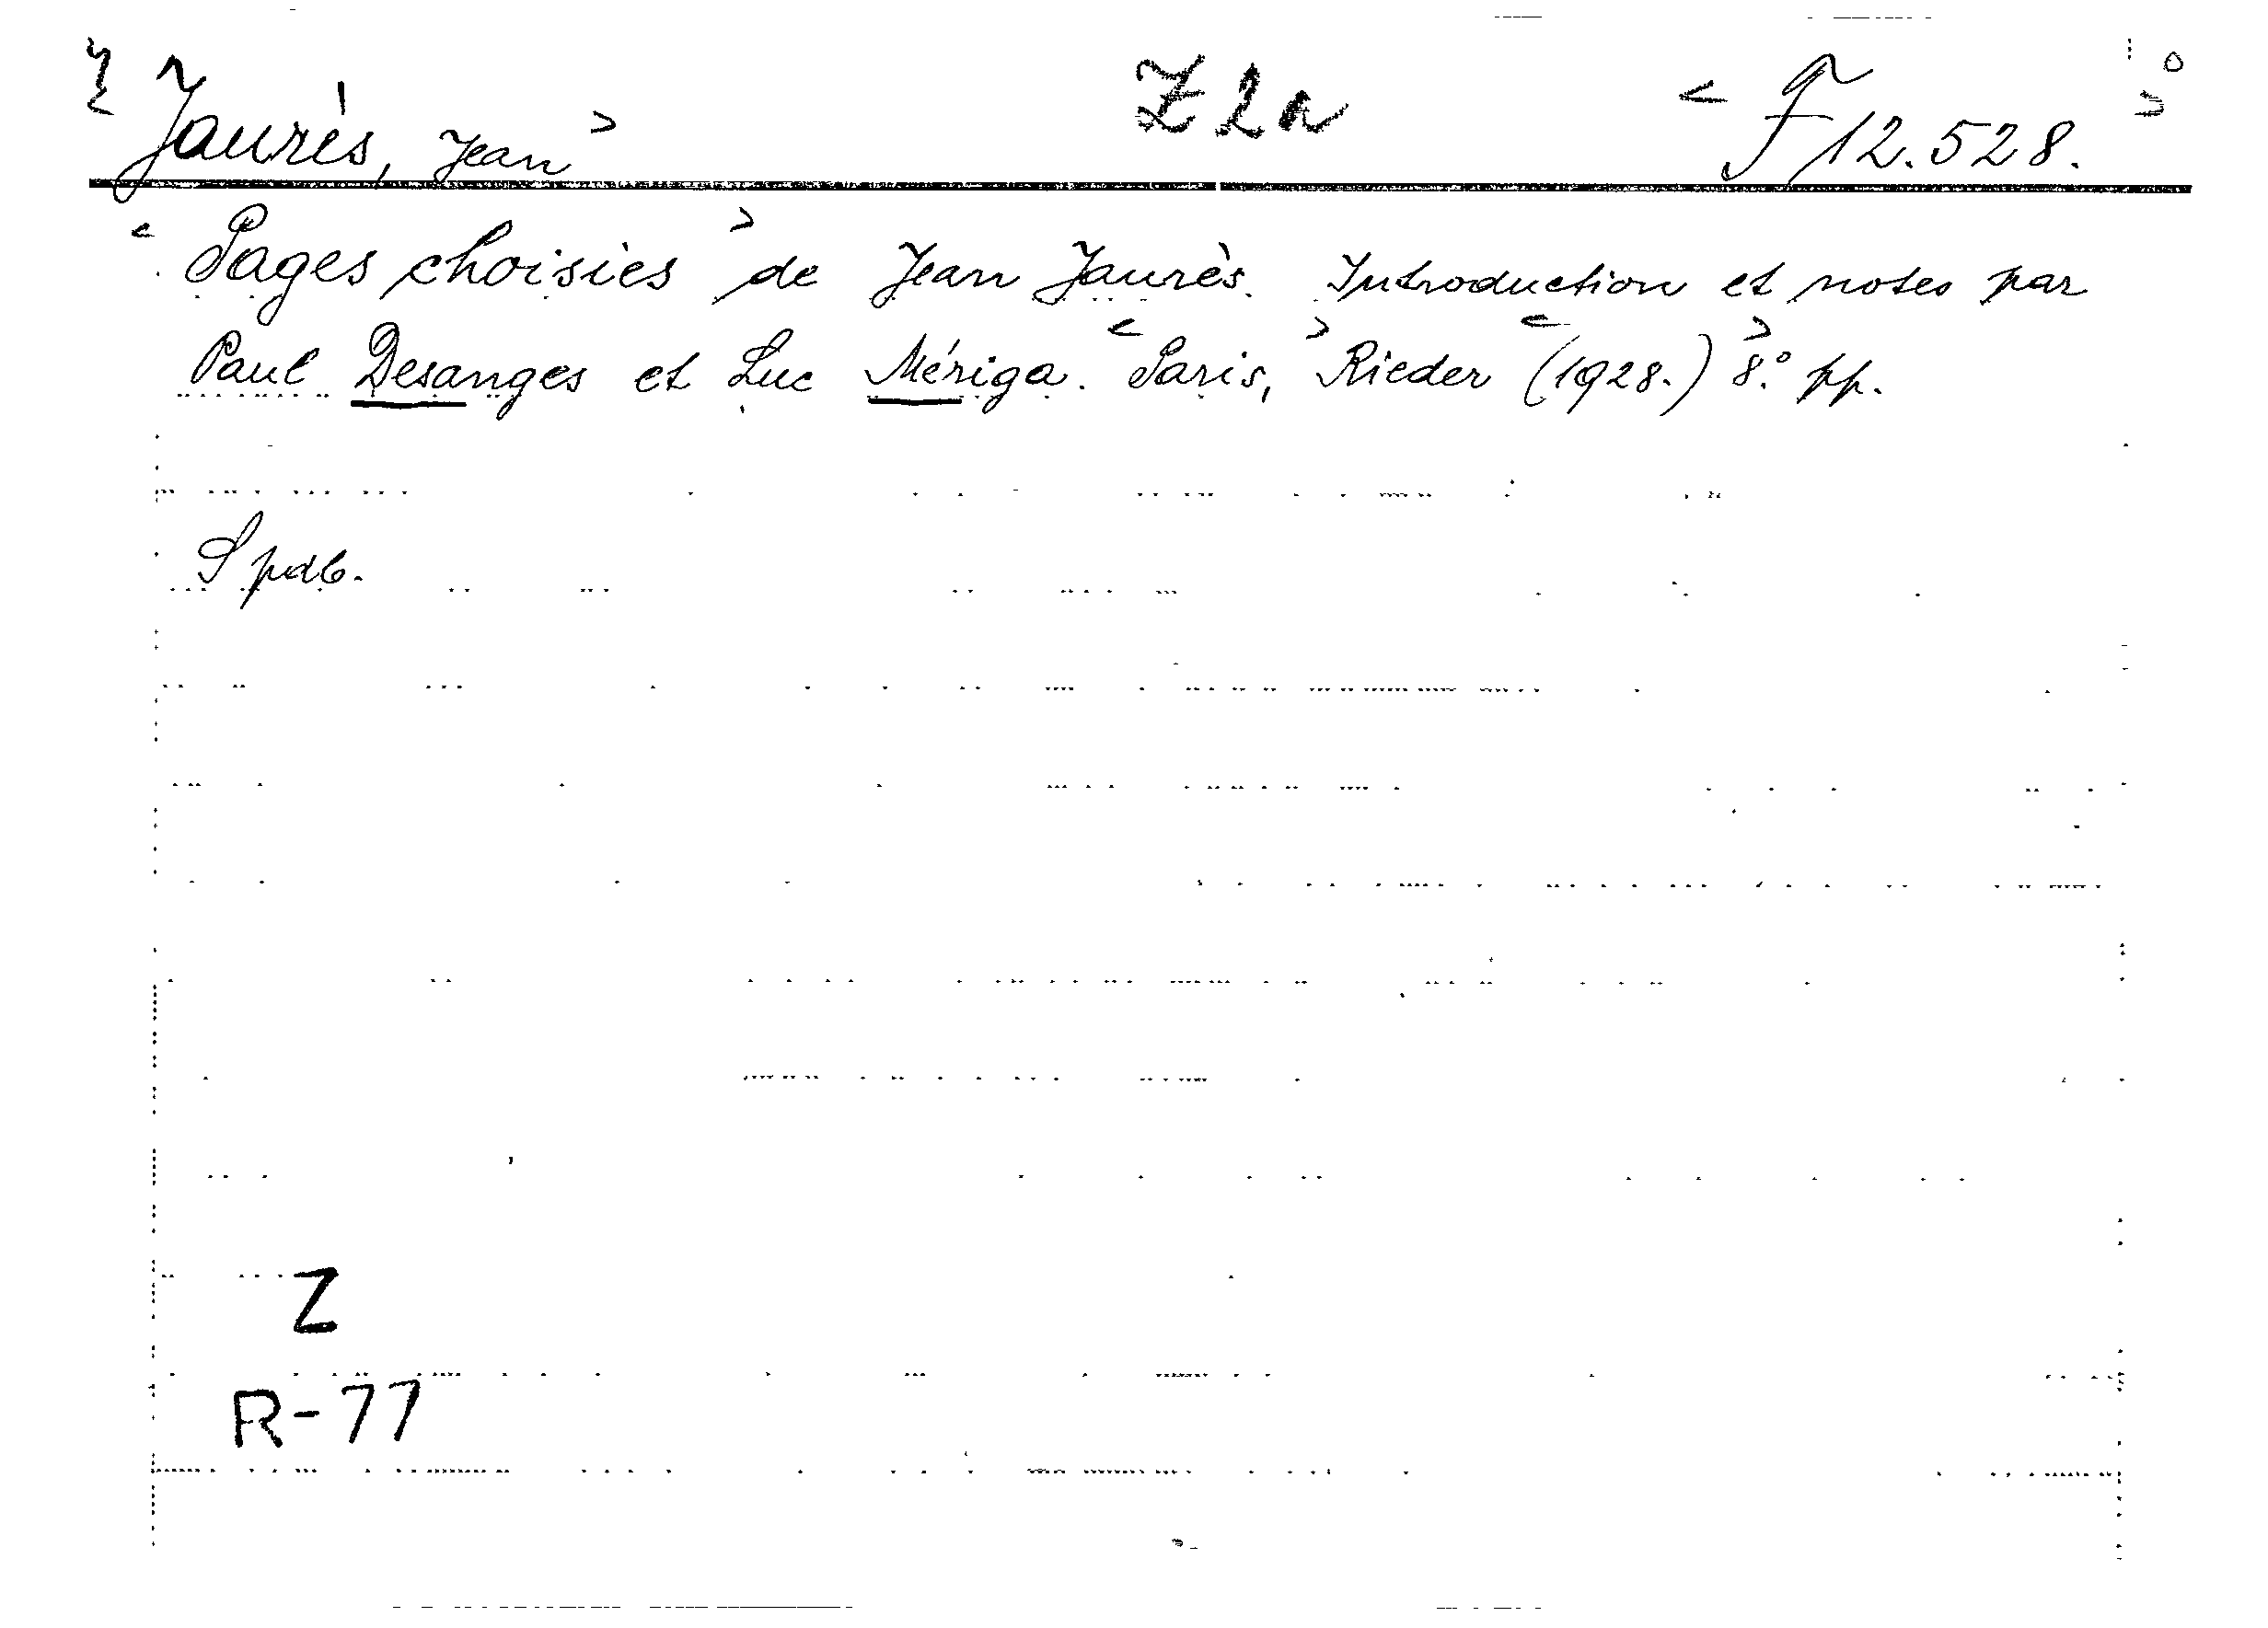 Jaurès, Jean Z 2a F 12.528.
Pages choisies de Jean Jaurès. Introduction et notes par
Paul Desanges et Luc Mériga. Paris, Rieder (1928.) 8.° pp.
S pdb.
Z
R-77